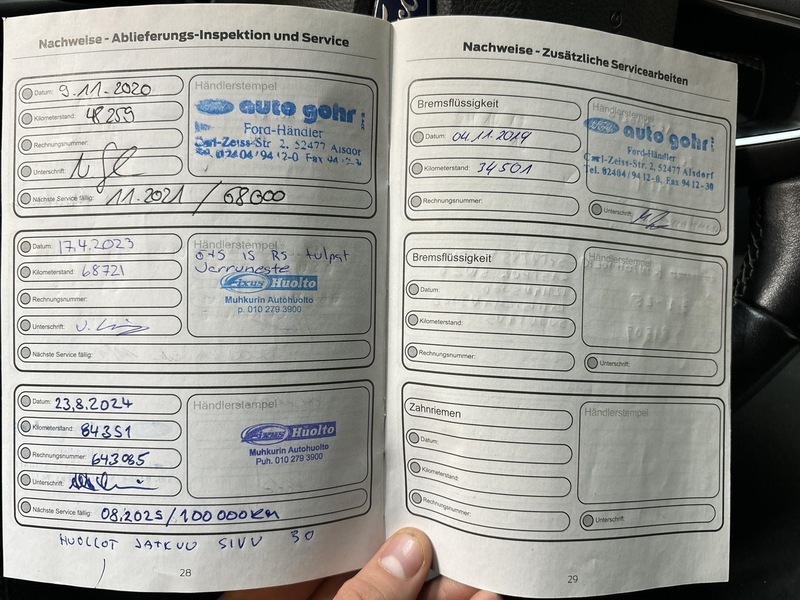 Nachweise - Ablieferungs-Inspektion und Service
Datum: 9.11.2020
Kilometerstand: 48259
Rechnungsnummer:
Unterschrift:
Nächste Service fällig: 11.2021 / 68000
Händlerstempel
auto gohr
Ford-Händler
Carl-Zeiss-Str 2, 52477 Alsdorf
Datum: 17.4.2023
Kilometerstand: 68721
Rechnungsnummer:
Unterschrift:
Nächste Service fällig:
Händlerstempel
Jarruneste
Fixus Huolto
Muhkurin Autohuolto
p. 010 279 3900
Datum: 23.8.2024
Kilometerstand: 84351
Rechnungsnummer: 643085
Unterschrift:
Nächste Service fällig: 08.2025/100000KM
Händlerstempel
Fixus Huolto
Muhkurin Autohuolto
Puh. 010 279 3900
HUOLLOT JATKUU SIVU 30
28
Nachweise - Zusätzliche Servicearbeiten
Bremsflüssigkeit
Datum: 04.11.2019
Kilometerstand: 34501
Rechnungsnummer:
Händlerstempel
auto gohr
Ford-Händler
Carl-Zeiss-Str. 2, 52477 Alsdorf
Tel. 02404/94 12-0, Fax 94 12-30
Unterschrift:
Bremsflüssigkeit
Datum:
Kilometerstand:
Rechnungsnummer:
Händlerstempel
Unterschrift:
Zahnriemen
Datum:
Kilometerstand:
Rechnungsnummer:
Händlerstempel
Unterschrift:
29